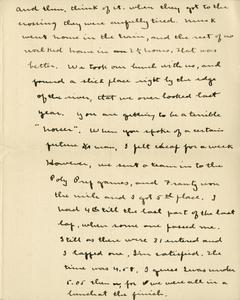 And then, think of it, when they got to the
crossing they were awfully tired. Munk
went home in the train, and the rest of us
walked home in an 2½ hours, that was
better. We took our lunch with us, and
found a slick place right by the edge
of the river, that we once looked last
year. You are getting to be a terrible
"noser". When you spoke of a certain
prime man, I felt cheap for a week
However, we sent a team in to the
Poly Prep games, and Frantz won
the mile and I got 5th place. I
had 4th till the last part of the last
lap, when some one passed me.
Still as there were 31 entered and
I lapped one, I'm satisfied. The
time was 4.58, I guess I was under
5.05 then for we were all in a
bunch at the finish.